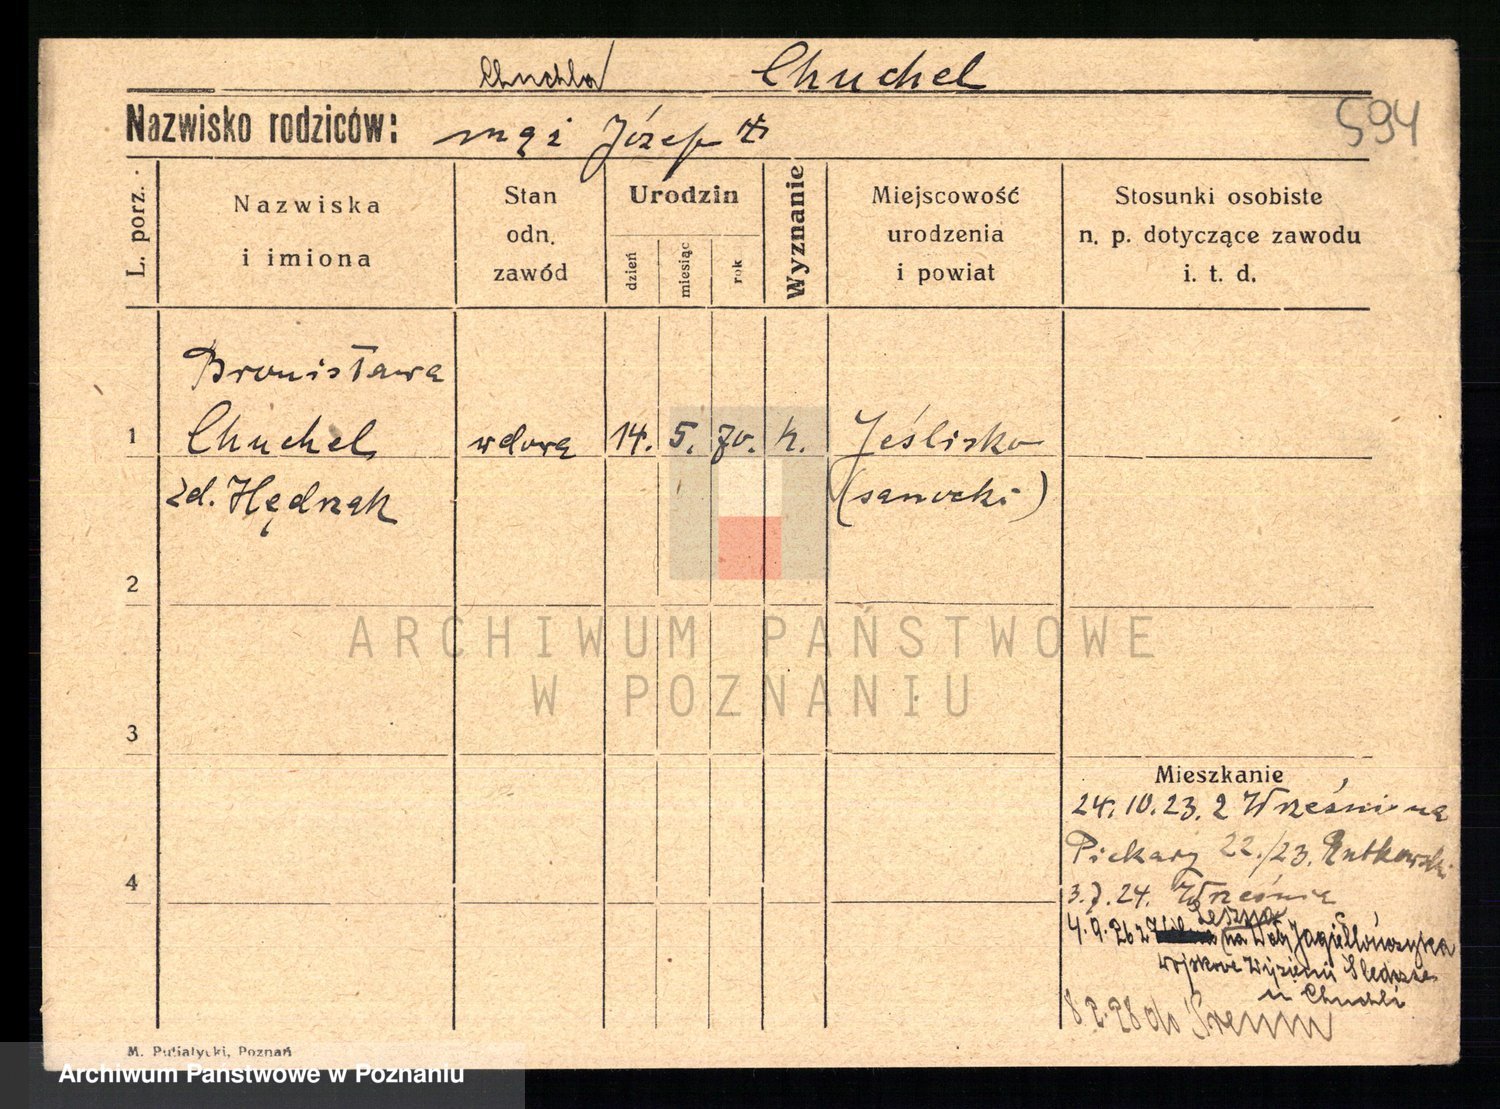 Chuchla/ Chuchel
594
Nazwisko rodziców: mąż Józef
L. porz.
Nazwiska
i imiona
Stan
odn.
zawód
Urodzin
dzień
miesiąc
rok
Wyznanie
Miejscowość
urodzenia
i powiat
Stosunki osobiste
n. p. dotyczące zawodu
i. t. d.
Bronisława
1 Chuchel wdowa 14. 5. 70. k. Jeślisko
zd. Hędrzak (sanocki)
2
ARCHIWUM PAŃSTWOWE
W POZNANIU
3
Mieszkanie
24.10.23. z Wrześni na
Piekary 22./23. Rutkowski
4
3.7.24. Września
Leszna
4.9.26 z na Jagiellończyka
wojskowe
u Chuchli
8.2.28 do Śremu
M. Putiatycki, Poznań
Archiwum Państwowe w Poznaniu